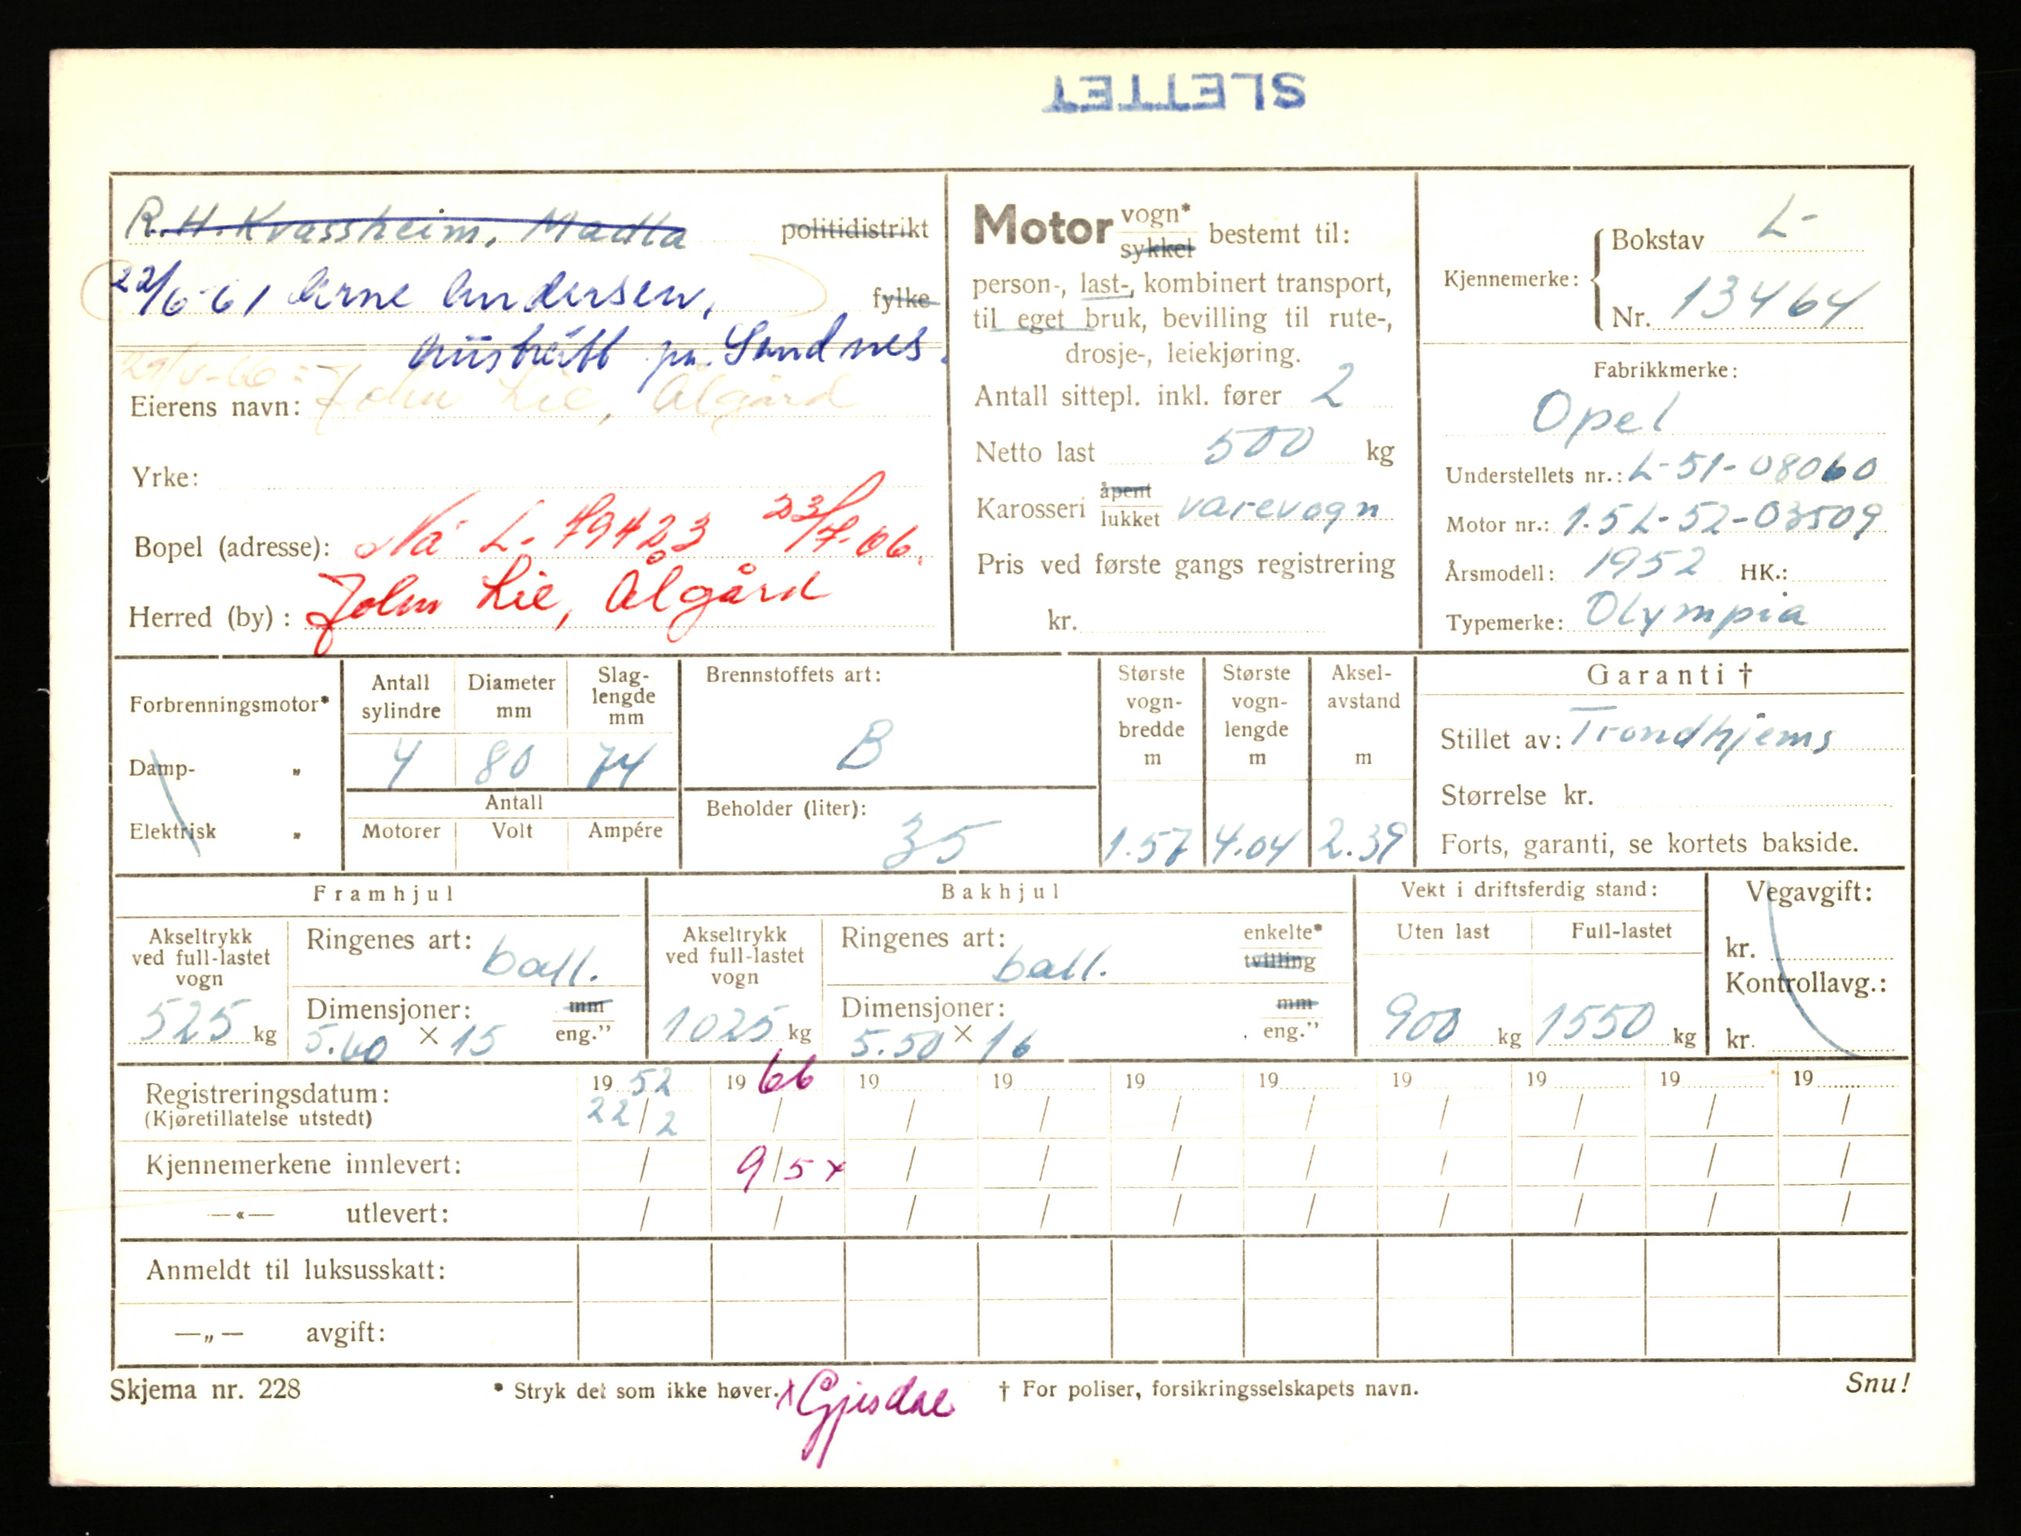 SLETTET
R. H. Kvassheim, Madla politidistrikt
22/6-61 Arne Andersen, fylke
Austrått pr. Sandnes.
Eierens navn: John Lie, Ålgård
Yrke:
Bopel (adresse): Nå L-79423 23/7-66.
Herred (by): John Lie, Ålgård
Motor vogn* sykkel bestemt til:
person-, last-, kombinert transport,
til eget bruk, bevilling til rute-,
drosje-, leiekjøring.
Antall sittepl. inkl. fører 2
Netto last 500 kg
Karosseri åpent lukket varevogn
Pris ved første gangs registrering
kr.
Kjennemerke: Bokstav L-
Nr. 13464
Fabrikkmerke:
Opel
Understellets nr.: L-51-08060
Motor nr.: 1.5L-52-03509
Årsmodell: 1952 HK.:
Typemerke: Olympia
Forbrenningsmotor*
Damp- „
Elektrisk „
Antall sylindre 4
Diameter mm 80
Slag-lengde mm 74
Antall
Motorer Volt Ampére
Brennstoffets art:
B
Beholder (liter):
35
Største vogn-bredde m 1.57
Største vogn-lengde m 4.04
Aksel-avstand m 2.39
Garanti †
Stillet av: Trondhjems
Størrelse kr.
Forts, garanti, se kortets bakside.
Framhjul
Akseltrykk ved full-lastet vogn
525 kg
Ringenes art: ball.
Dimensjoner: mm
5.60 × 15 eng."
Bakhjul
Akseltrykk ved full-lastet vogn
1025 kg
Ringenes art: ball. enkelte* tvilling
Dimensjoner: mm
5.50 × 16 eng."
Vekt i driftsferdig stand:
Uten last Full-lastet
900 kg 1550 kg
Vegavgift:
kr.
Kontrollavg.:
kr.
Registreringsdatum: 19 52 19 66 19 19 19 19 19 19 19 19
(Kjøretillatelse utstedt) 22/2 / / / / / / / / /
Kjennemerkene innlevert: / 9/5 x / / / / / / / /
—«— utlevert: / / / / / / / / / /
Anmeldt til luksusskatt:
—„— avgift:
Skjema nr. 228 * Stryk det som ikke høver. x Gjesdal † For poliser, forsikringsselskapets navn. Snu!